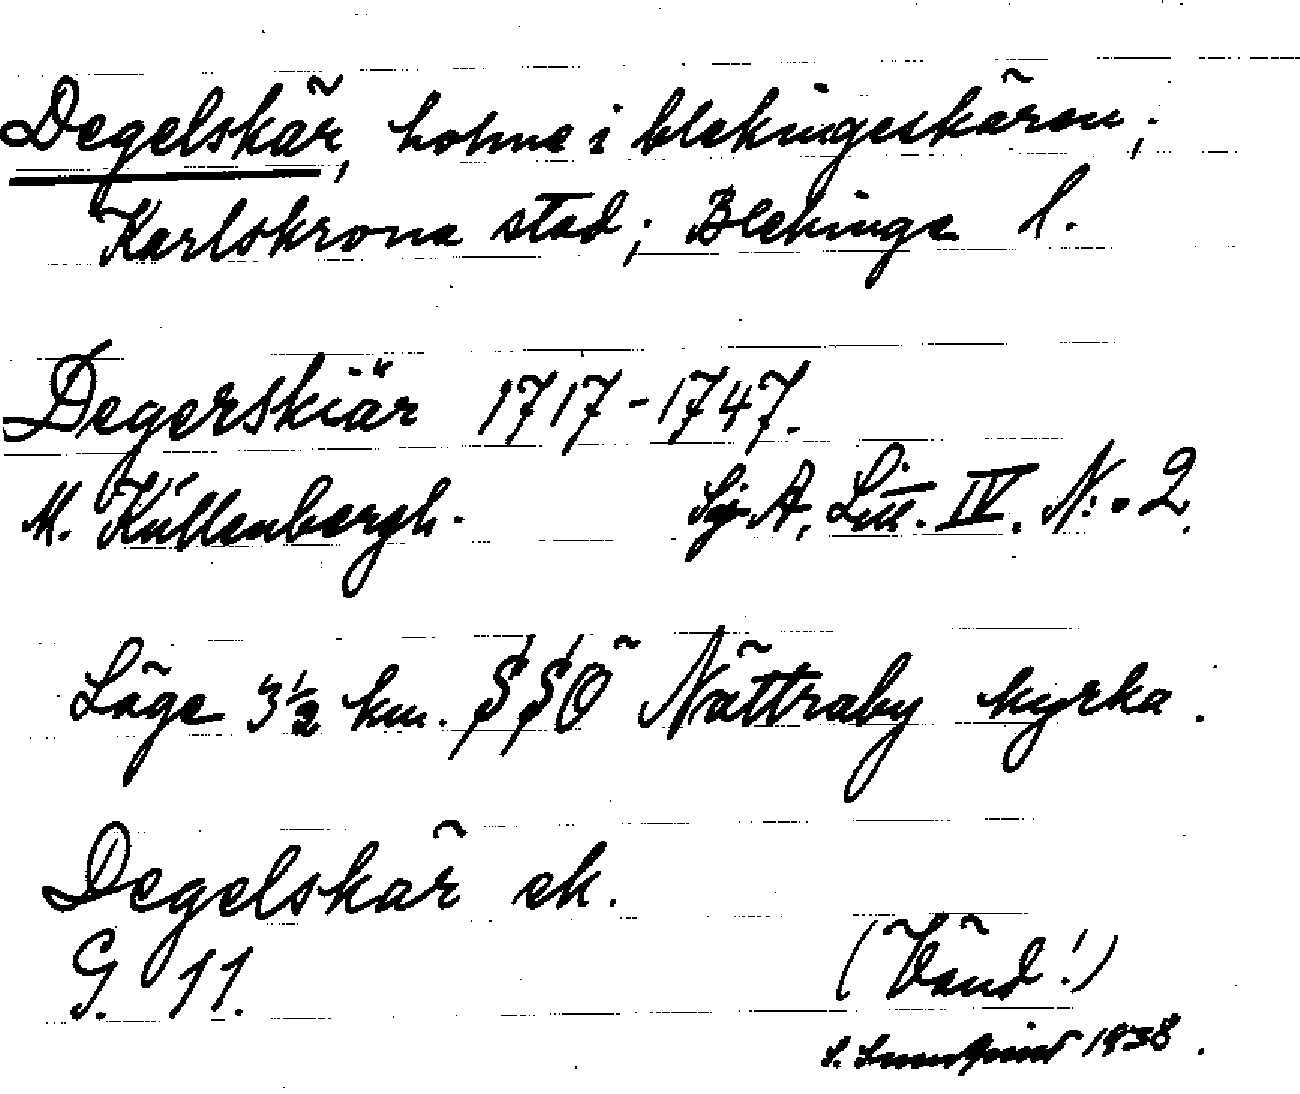 Degelskär, holme i blekingeskären;
Karlskrona stad; Blekinge l.
Degerskiär 1717-1747.
M. Küllenbergh. Sjö A, Litt. IV. N:o 2.
Läge 3½ km. SSÖ Nättraby kyrka.
Degelskär ek.
G. 11. (Vänd!)
1938.